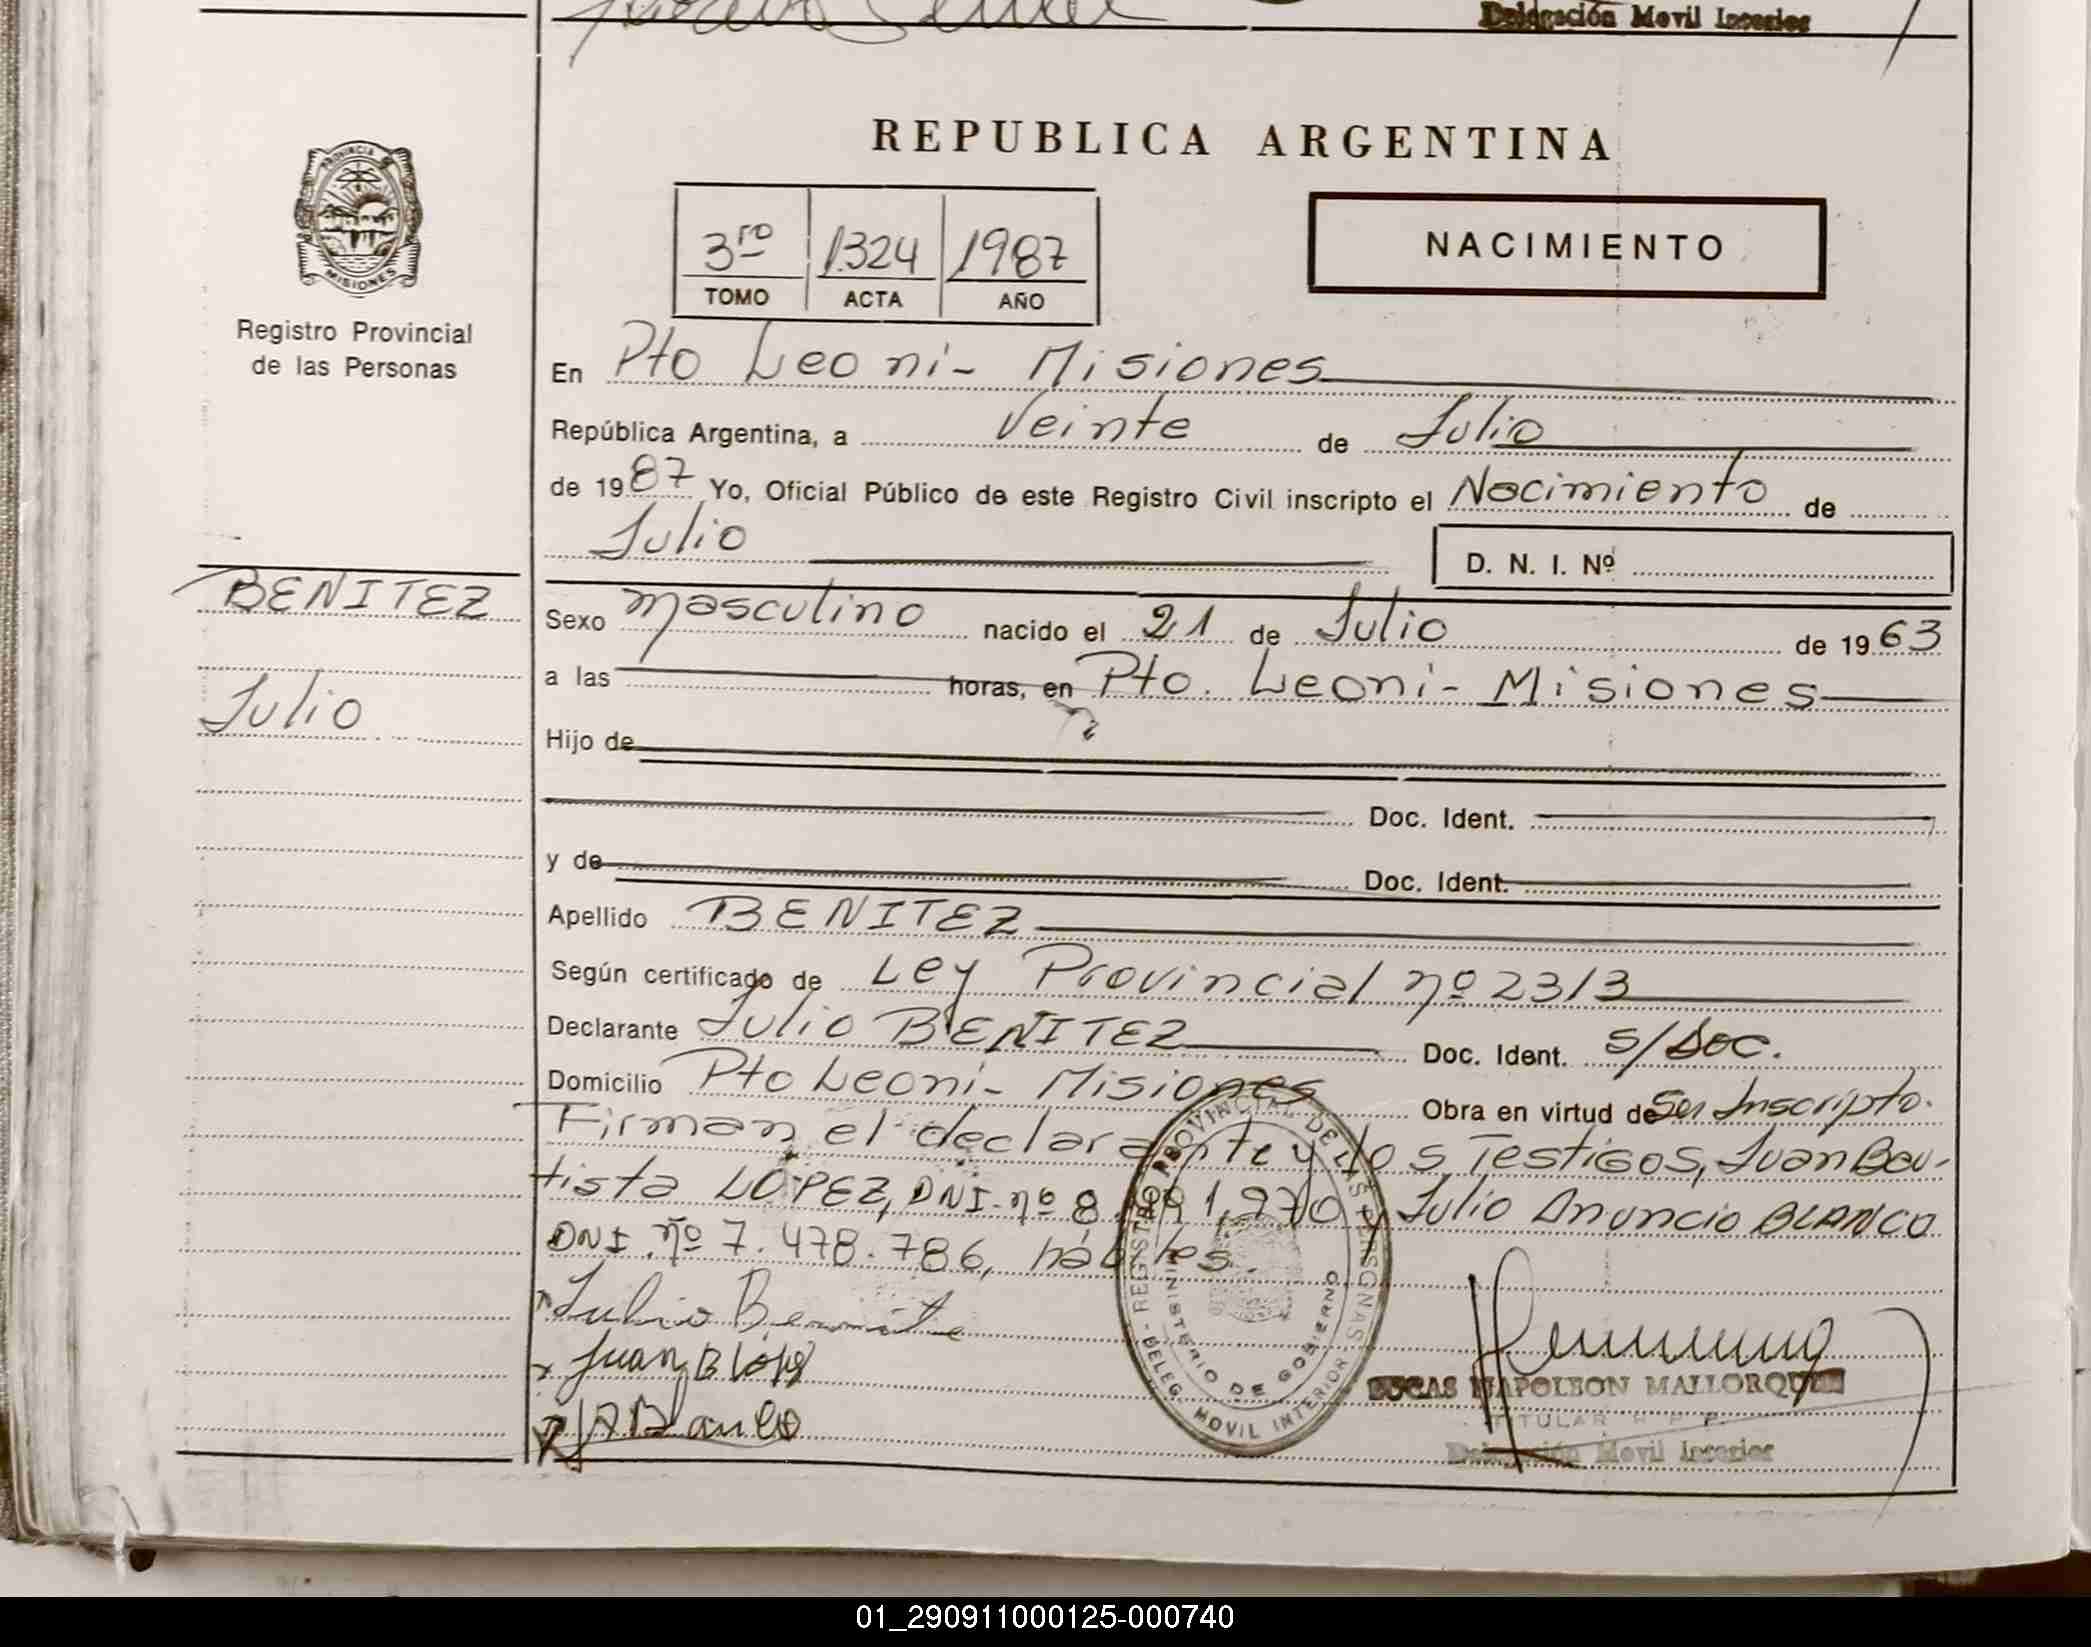 Delegación Movil Interior
REPUBLICA ARGENTINA
PROVINCIA DE
MISIONES
Registro Provincial
de las Personas
3ro 1324 1987
TOMO ACTA AÑO
NACIMIENTO
En Pto Leoni - Misiones
República Argentina, a Veinte de Julio
de 1987 Yo, Oficial Público de este Registro Civil inscripto el Nacimiento de
Julio
D. N. I. Nº
BENITEZ
Julio
Sexo masculino nacido el 21 de Julio de 1963
a las horas, en Pto. Leoni - Misiones
Hijo de
Doc. Ident.
y de Doc. Ident.
Apellido BENITEZ
Según certificado de Ley Provincial nº 2313
Declarante Julio BENITEZ Doc. Ident. s/Doc.
Domicilio Pto Leoni - Misiones Obra en virtud de Ser Inscripto.
Firman el declarante y los Testigos, Juan Bau-
tista LOPEZ, DNI. nº 8. 1.970 y Julio Anuncio BLANCO
DNI. nº 7.478.786, hábiles.
Julio Benite
Juan B Lopez
J A Blanco
REGISTRO PROVINCIAL DE LAS PERSONAS - DELEG. MOVIL INTERIOR
MINISTERIO DE GOBIERNO
LUCAS NAPOLEON MALLORQUIN
TITULAR R P P
Delegación Movil Interior
01_290911000125-000740